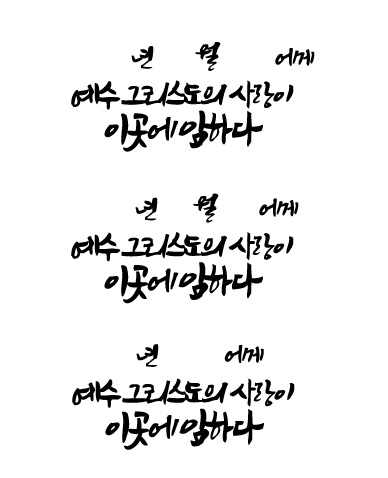 년 월 에게
예수 그리스도의 사랑이
이곳에 임하다
년 월 에게
예수 그리스도의 사랑이
이곳에 임하다
년 에게
예수 그리스도의 사랑이
이곳에 임하다